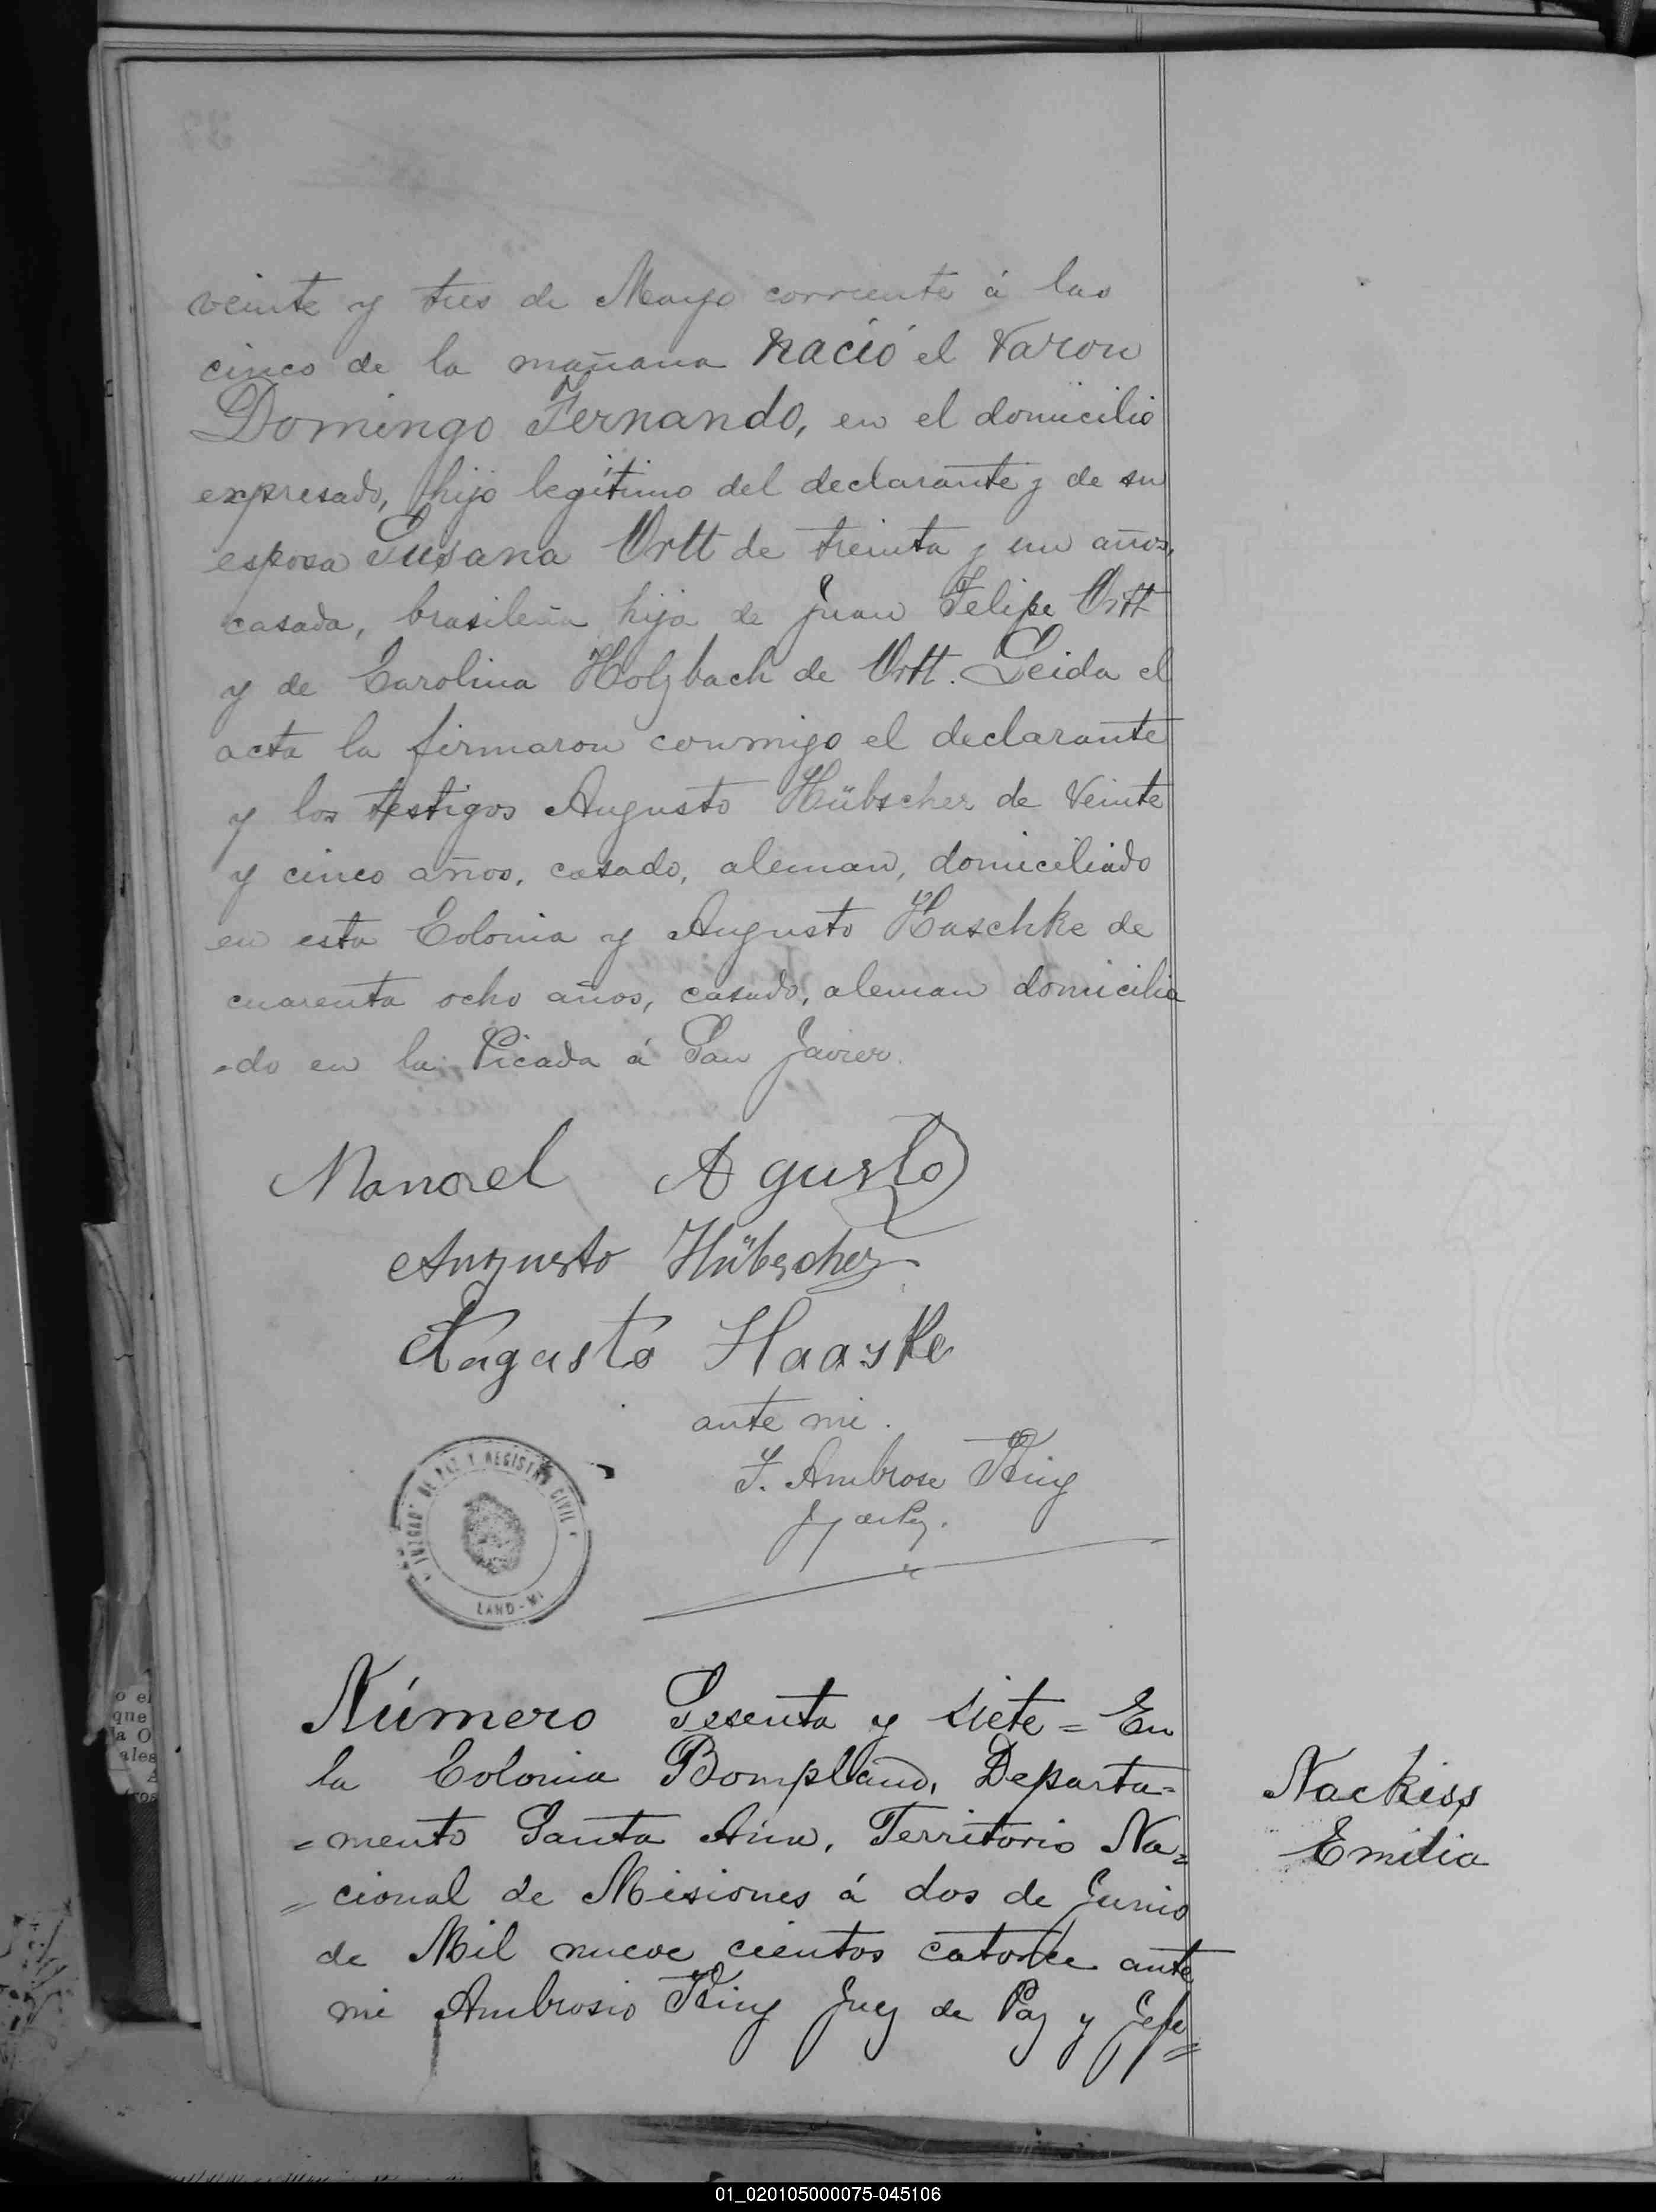 veinte y tres de Mayo corriente á las
cinco de la mañana nació el Varon
Domingo Fernando, en el domicilio
expresado, hijo legítimo del declarante y de su
esposa Susana Ortt de treinta y un años,
casada, brasileña hija de Juan Felipe Ortt
y de Carolina Holzbach de Ortt. Leida el
acta la firmaron conmigo el declarante
y los testigos Augusto Hübscher de Veinte
y cinco años, casado, aleman, domiciliado
en esta Colonia y Augusto Haschke de
cuarenta ocho años, casado, aleman domicilia
-do en la Picada á San Javier.
Manoel Agusto
Augusto Hübscher
Augusto Haaske
ante mi.
F. Ambrose King
J de Paz.
JUZGADO DE PAZ Y REGISTRO CIVIL
LAND-MI
Número Sesenta y Siete = En
la Colonia Bompland, Departa=
=mento Santa Ana, Territorio Na=
=cional de Misiones á dos de Junio
de Mil nueve cientos catorce ante
mi Ambrosio King Juez de Paz y Gefe=
Nackiss
Emilia
o el
que
a O
ales
01_020105000075-045106